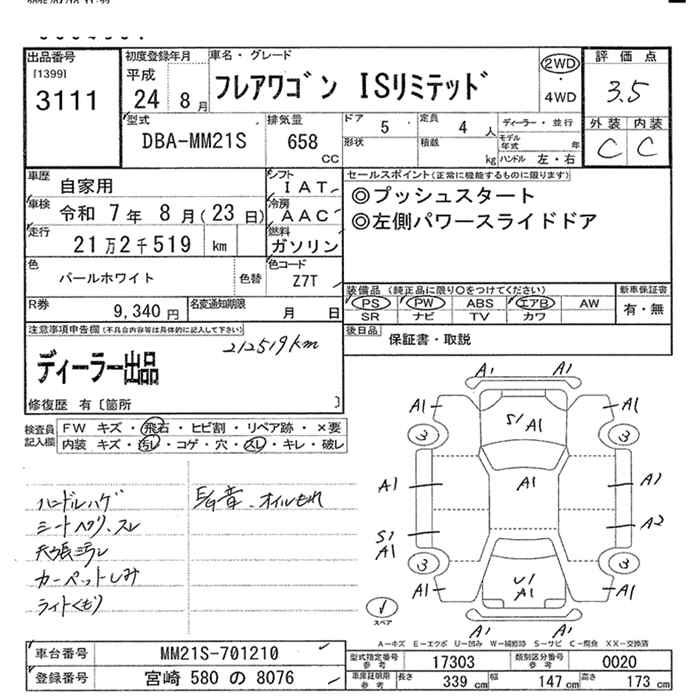 出品番号
[1399]
3111
初度登録年月
平成
24 8月
車名・グレード
フレアワゴン ISリミテッド
2WD
・
4WD
評価点
3.5
外装 内装
C C
型式
DBA-MM21S
排気量
658 CC
ドア 5
形状
定員 4 人
積載 kg
ディーラー・並行
モデル年式 年
ハンドル 左・右
車歴
自家用
車検
令和 7年 8月(23日)
走行
21万2千519 km
シフト
IAT
冷房
AAC
燃料
ガソリン
色
パールホワイト
色替
色コード
Z7T
R券
9,340 円
名変通知期限
月 日
セールスポイント(正常に機能するものに限ります)
◎プッシュスタート
◎左側パワースライドドア
装備品(純正品に限り○をつけてください)
PS PW ABS エアB AW
SR ナビ TV カワ
新車保証書
有・無
後日品
保証書・取説
注意事項申告欄(不具合内容等は具体的に記入して下さい)
212519km
ディーラー出品
修復歴 有〔箇所 〕
検査員記入欄
FW キズ・飛石・ヒビ割・リペア跡・×要
内装 キズ・汚レ・コゲ・穴・スレ・キレ・破レ
ハンドルハゲ
シートヘタリ、スレ
天張ヨゴレ
カーペットしみ
ライトくもり
E/G音、オイルもれ
A1 A1
A1 S1 A1 A1
3 3
A1 A1 A1
S1 A1 A2
3 3
A1 U1 A1 A1
スペア
A1 A1
A-キズ E-エクボ U-凹み W-補修跡 S-サビ C-腐食 XX-交換済
車台番号
MM21S-701210
登録番号
宮崎 580 の 8076
型式指定番号 参考
17303
類別区分番号 参考
0020
車庫証明用 参考
長さ 339 cm 幅 147 cm 高さ 173 cm